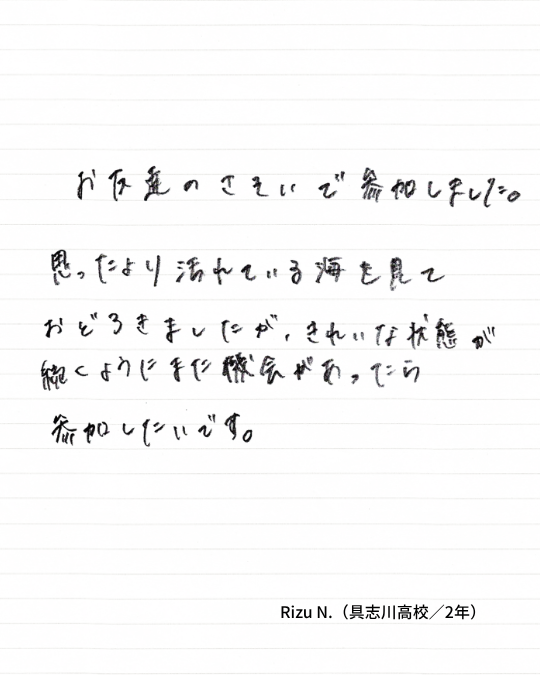 お友達のさそいで参加しました。
思ったより汚れている海を見て
おどろきましたが、きれいな状態が
続くようにまた機会があったら
参加したいです。
Rizu N.（具志川高校／2年）